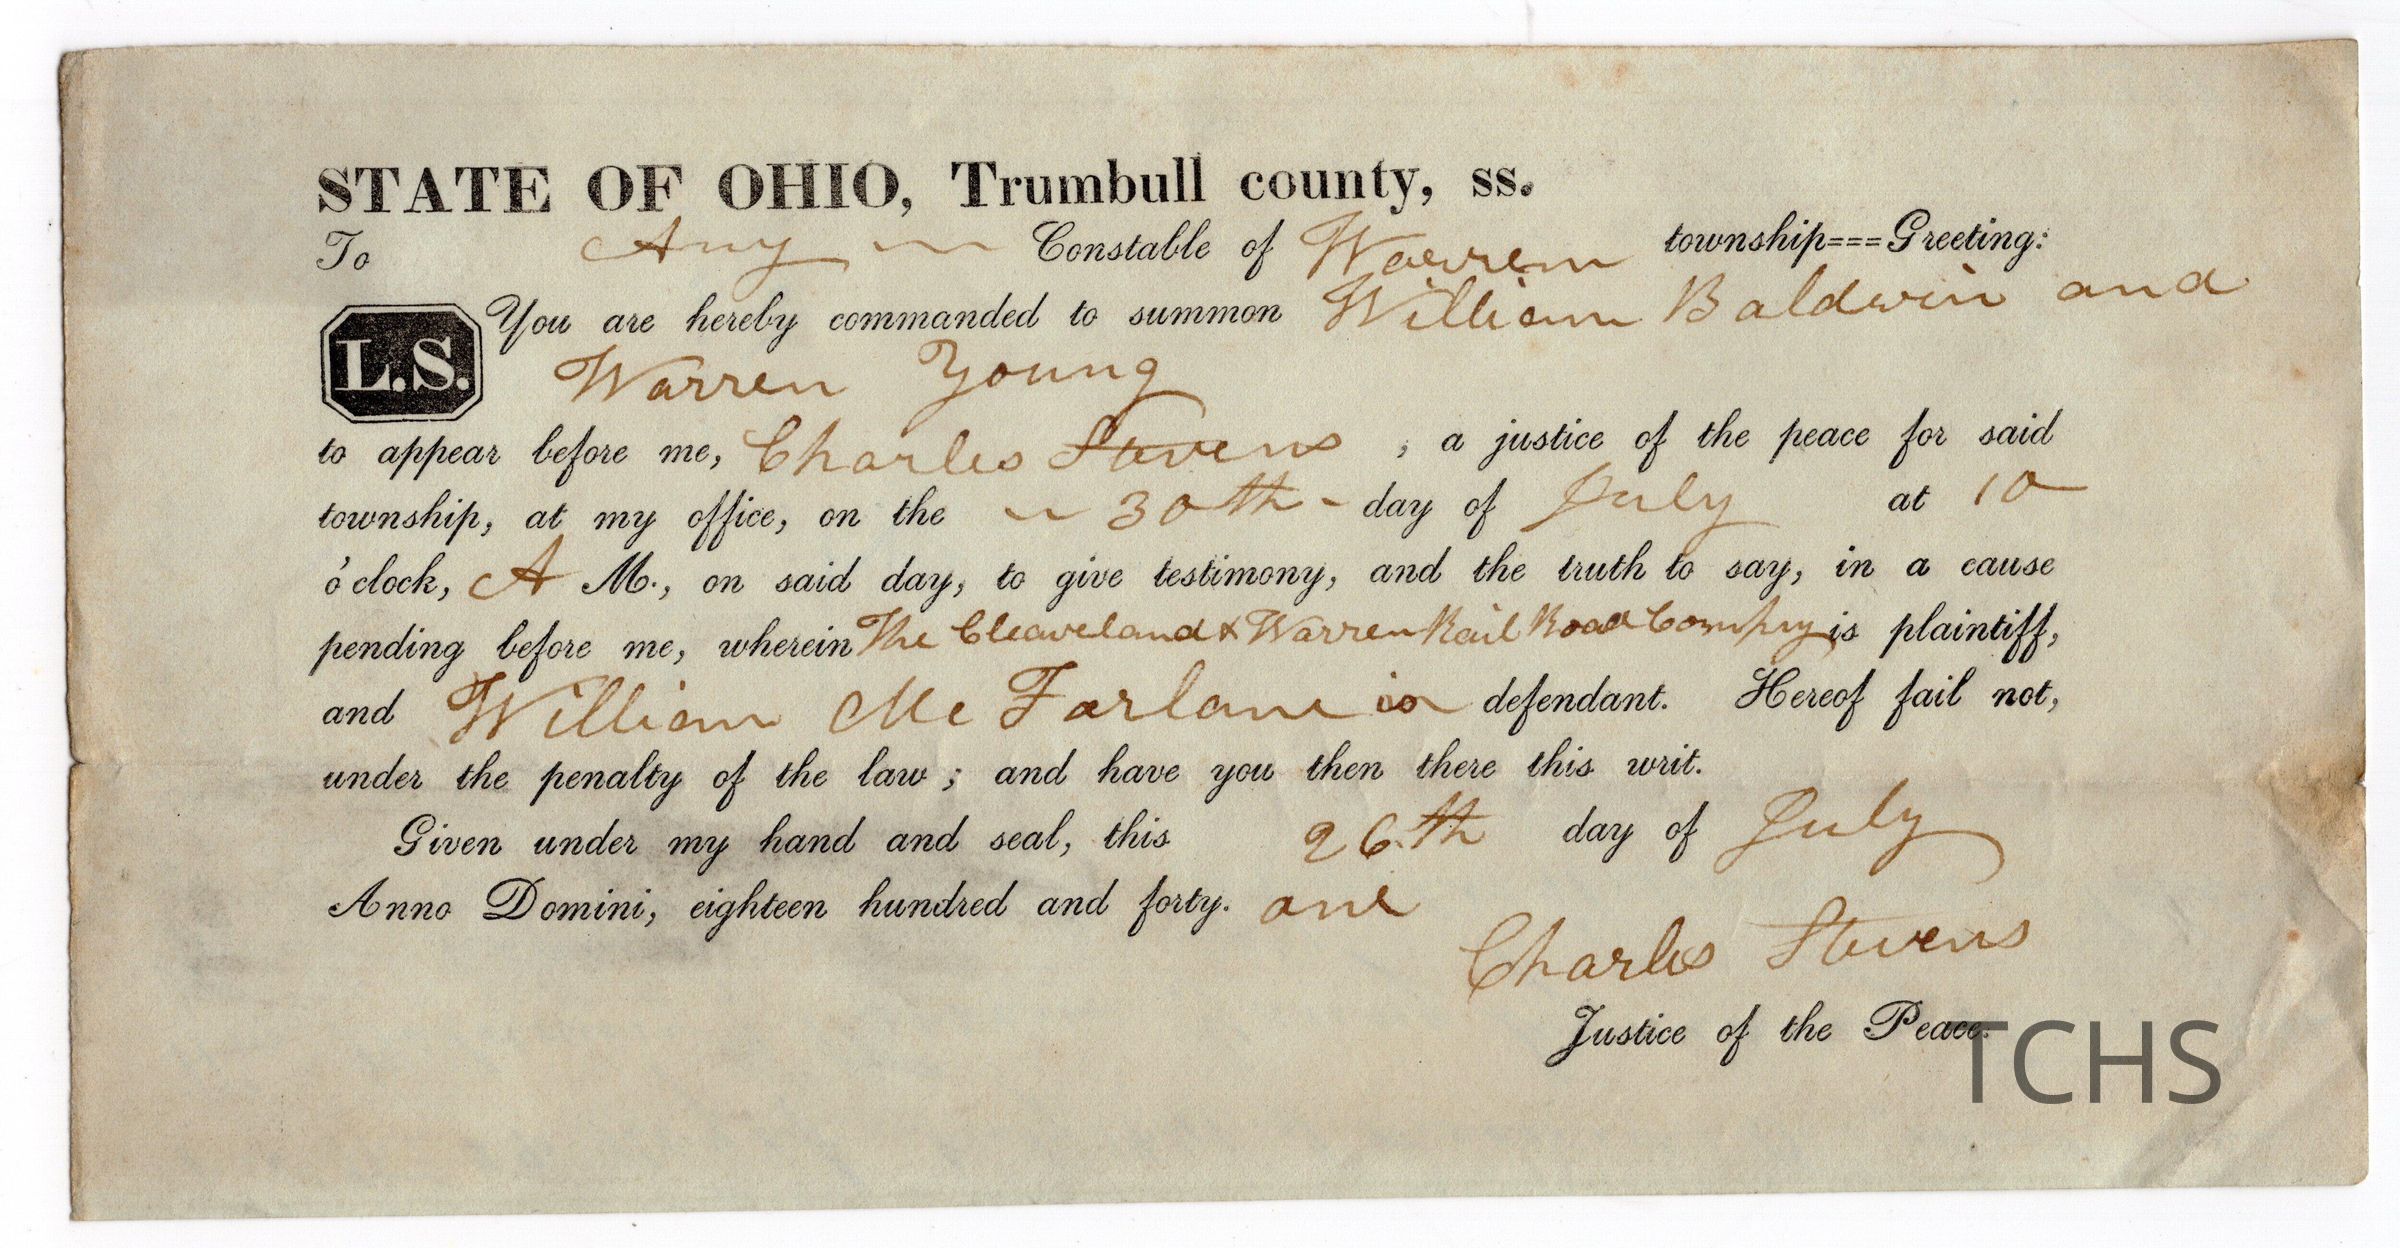 STATE OF OHIO, Trumbull county, ss.
To Any Constable of Warren township===Greeting:
L.S. You are hereby commanded to summon William Baldwin and
Warren Young
to appear before me, Charles Stevens, a justice of the peace for said
township, at my office, on the 30th day of July at 10
o'clock, A M., on said day, to give testimony, and the truth to say, in a cause
pending before me, wherein The Cleaveland & Warren Rail Road Compny is plaintiff,
and William Mc Farlane is defendant. Hereof fail not,
under the penalty of the law; and have you then there this writ.
Given under my hand and seal, this 26.th day of July
Anno Domini, eighteen hundred and forty. one
Charles Stevens
Justice of the Peace.
TCHS